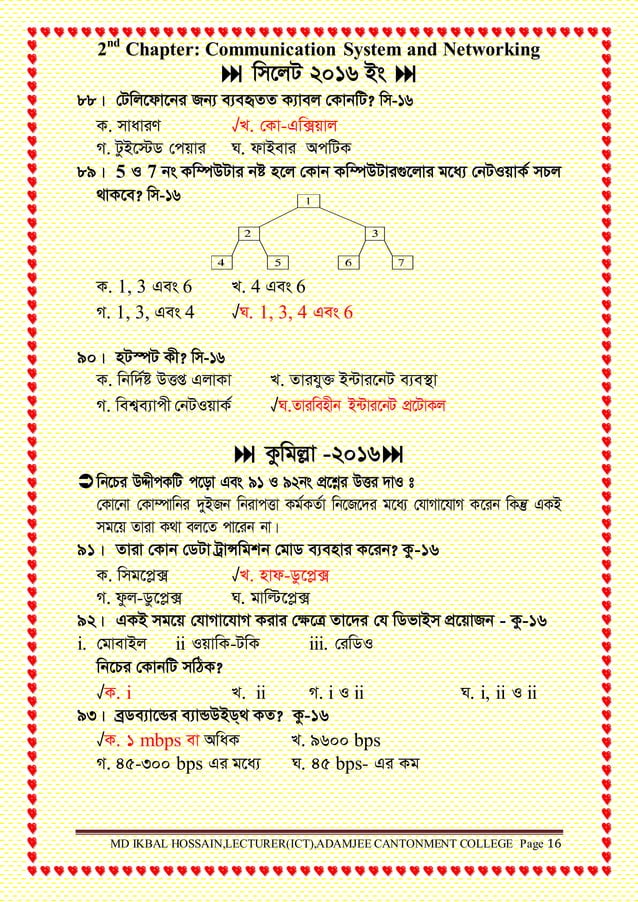 2nd Chapter: Communication System and Networking
সিলেট ২০১৬ ইং
৮৮। টেলিফোনের জন্য ব্যবহৃতত ক্যাবল কোনটি? সি-১৬
ক. সাধারণ √খ. কো-এক্সিয়াল
গ. টুইস্টেড পেয়ার ঘ. ফাইবার অপটিক
৮৯। 5 ও 7 নং কম্পিউটার নষ্ট হলে কোন কম্পিউটারগুলোর মধ্যে নেটওয়ার্ক সচল
থাকবে? সি-১৬
1
2 3
4 5 6 7
ক. 1, 3 এবং 6 খ. 4 এবং 6
গ. 1, 3, এবং 4 √ঘ. 1, 3, 4 এবং 6
৯০। হটস্পট কী? সি-১৬
ক. নির্দিষ্ট উত্তপ্ত এলাকা খ. তারযুক্ত ইন্টারনেট ব্যবস্থা
গ. বিশ্বব্যাপী নেটওয়ার্ক √ঘ.তারবিহীন ইন্টারনেট প্রটোকল
কুমিল্লা -২০১৬
নিচের উদ্দীপকটি পড়ো এবং ৯১ ও ৯২নং প্রশ্নের উত্তর দাও ঃ
কোনো কোম্পানির দুইজন নিরাপত্তা কর্মকর্তা নিজেদের মধ্যে যোগাযোগ করেন কিন্তু একই
সময়ে তারা কথা বলতে পারেন না।
৯১। তারা কোন ডেটা ট্রান্সমিশন মোড ব্যবহার করেন? কু-১৬
ক. সিমপ্লেক্স √খ. হাফ-ডুপ্লেক্স
গ. ফুল-ডুপ্লেক্স ঘ. মাল্টিপ্লেক্স
৯২। একই সময়ে যোগাযোগ করার ক্ষেত্রে তাদের যে ডিভাইস প্রয়োজন - কু-১৬
i. মোবাইল ii ওয়াকি-টকি iii. রেডিও
নিচের কোনটি সঠিক?
√ক. i খ. ii গ. i ও ii ঘ. i, ii ও ii
৯৩। ব্রডব্যান্ডের ব্যান্ডউইড্‌থ কত? কু-১৬
√ক. ১ mbps বা অধিক খ. ৯৬০০ bps
গ. ৪৫-৩০০ bps এর মধ্যে ঘ. ৪৫ bps- এর কম
MD IKBAL HOSSAIN,LECTURER(ICT),ADAMJEE CANTONMENT COLLEGE Page 16